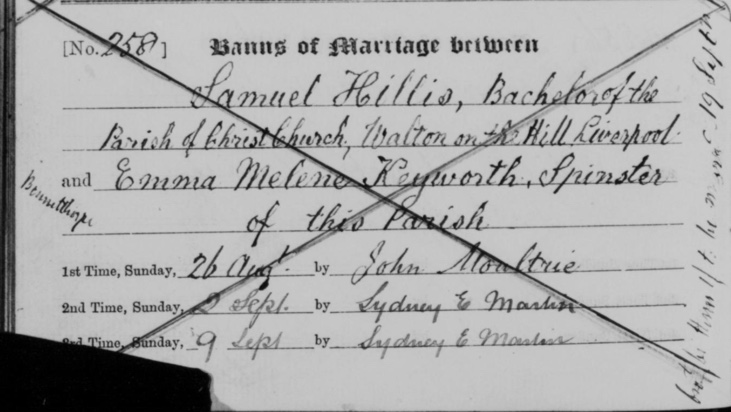 [No. 258]
Banns of Marriage between
Samuel Hillis, Bachelor of the
Parish of Christ Church, Walton on the Hill Liverpool
and Emma Melene Keyworth, Spinster
of this Parish
1st Time, Sunday, 26 Augt. by John Moultrie
2nd Time, Sunday, 2 Sept. by Sydney E Martin
3rd Time, Sunday, 9 Sept by Sydney E Martin
Bennetthorpe
19 Sept